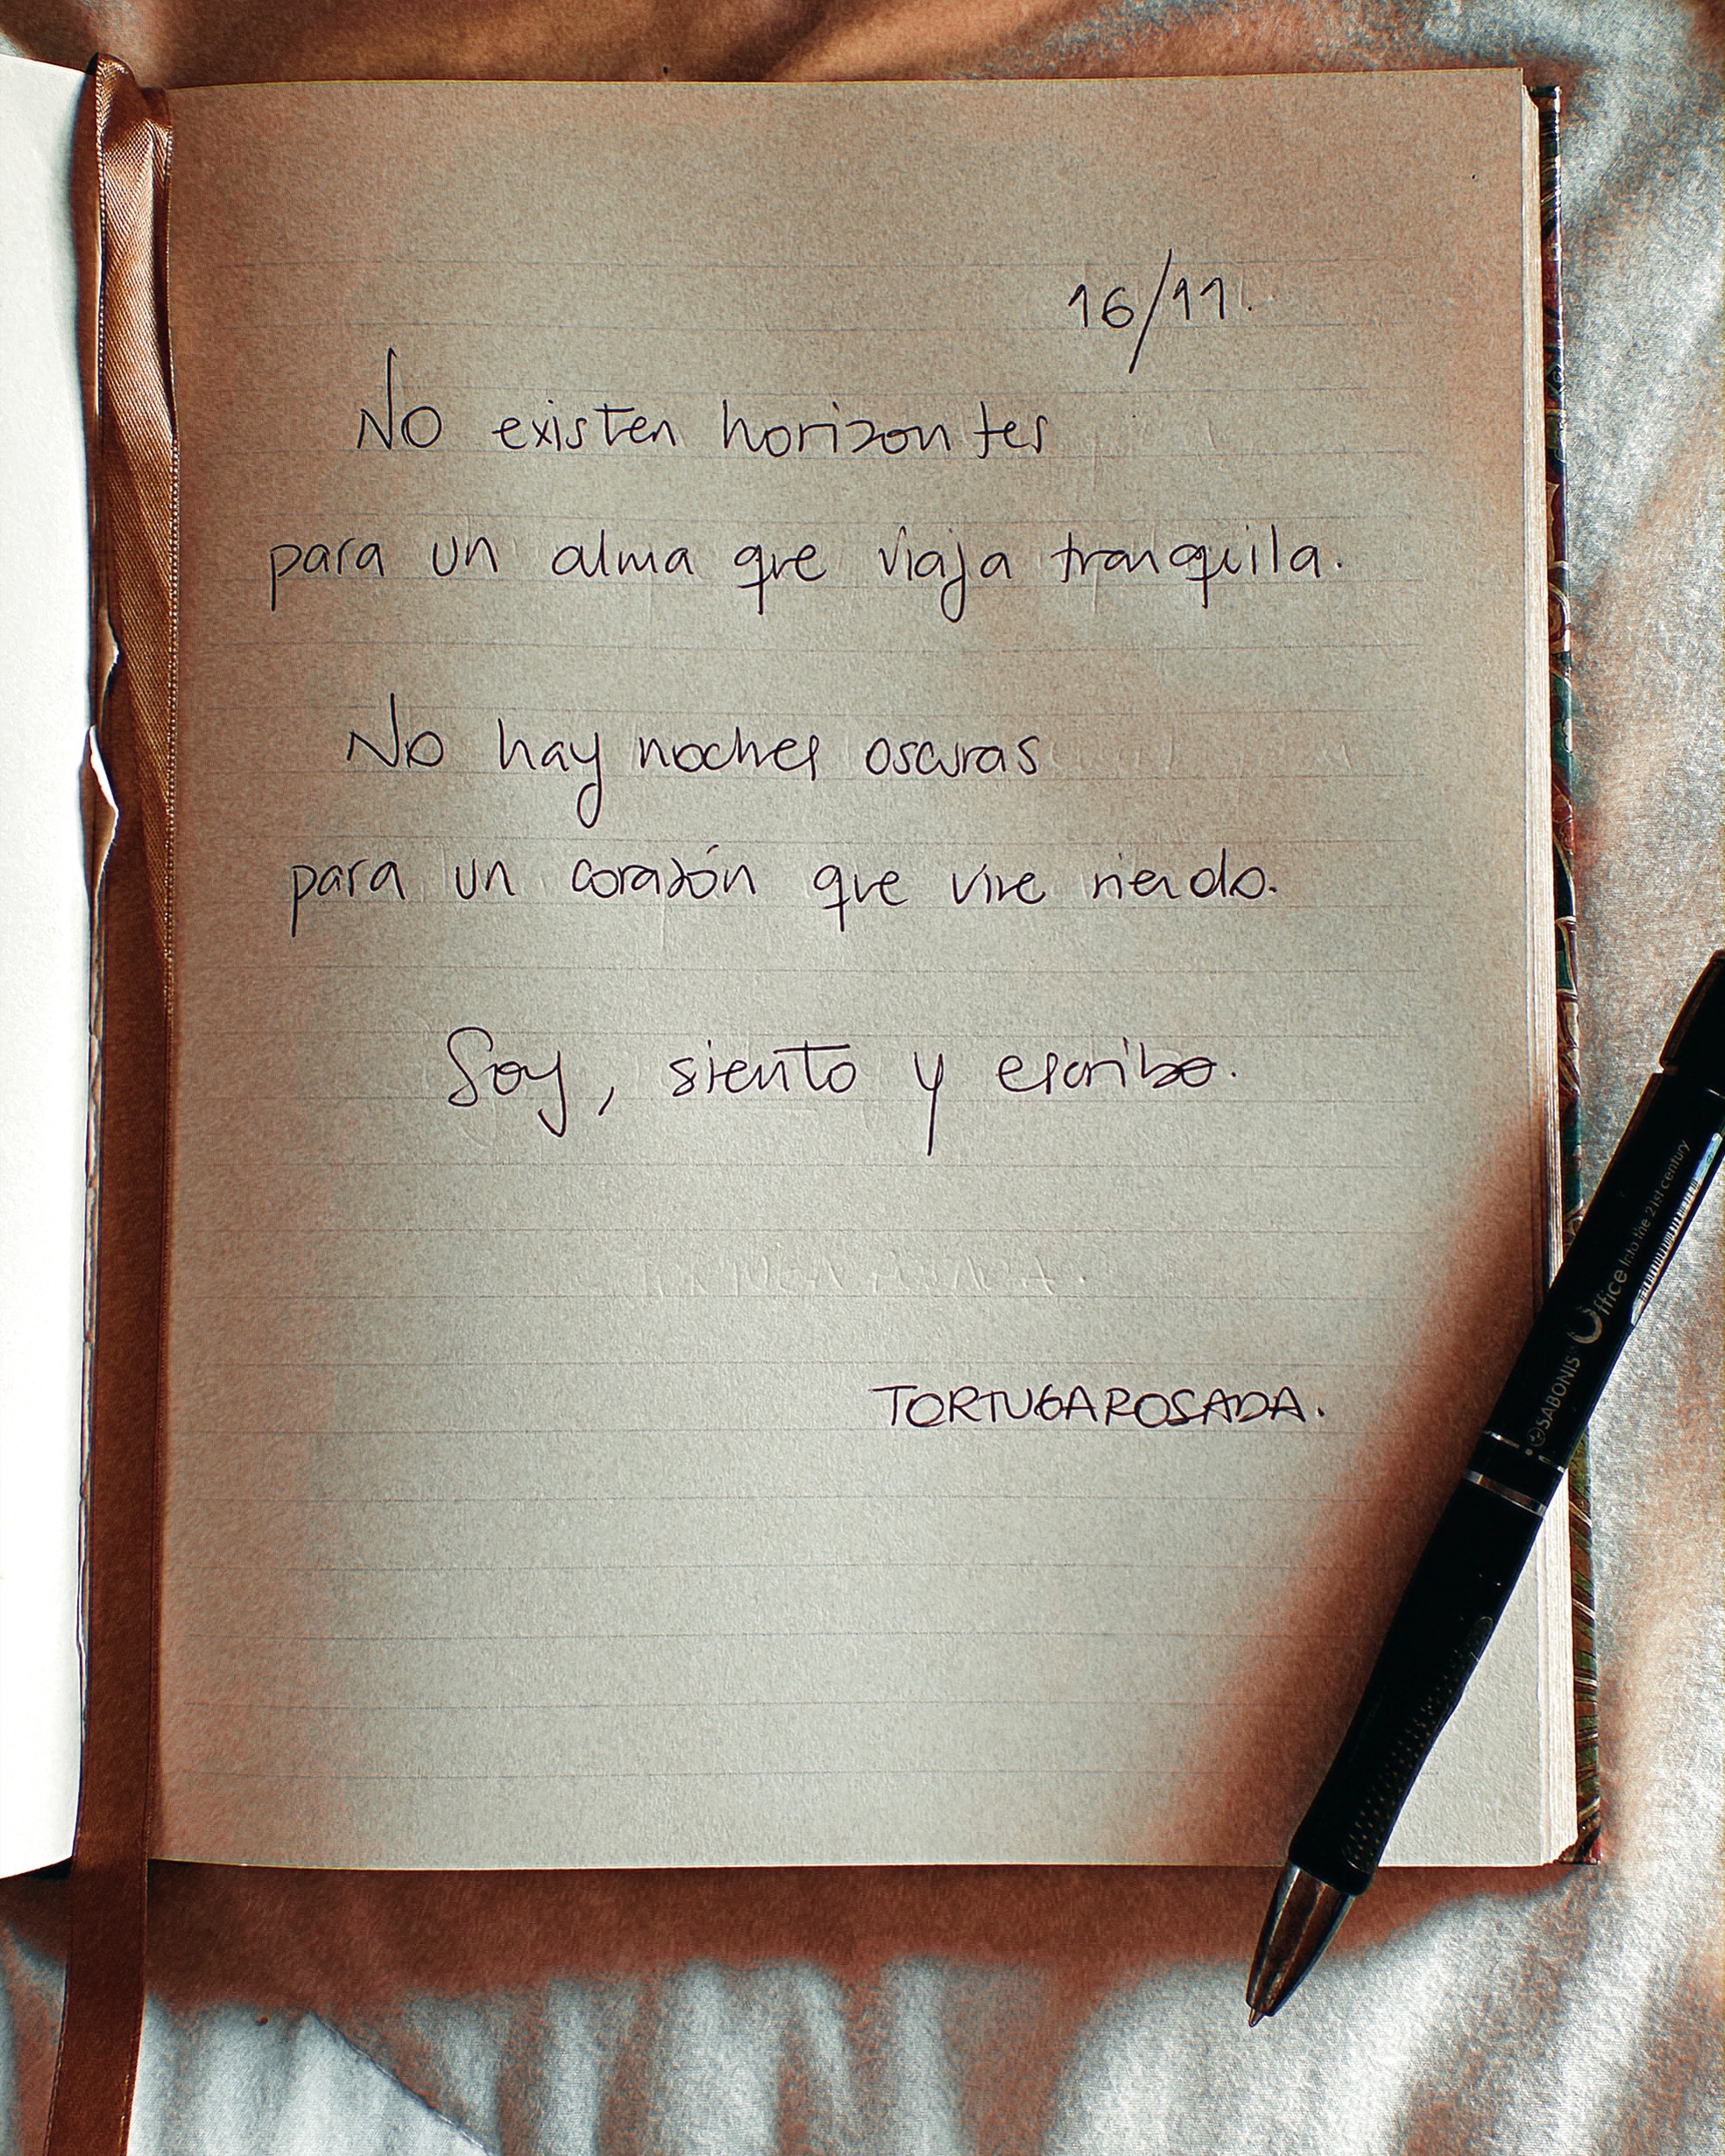 16/11.
No existen horizontes
para un alma que viaja tranquila.
No hay noches oscuras
para un corazón que vive riendo.
Soy, siento y escribo.
TORTUGAROSADA.
SABONIS Office Into the 21st century